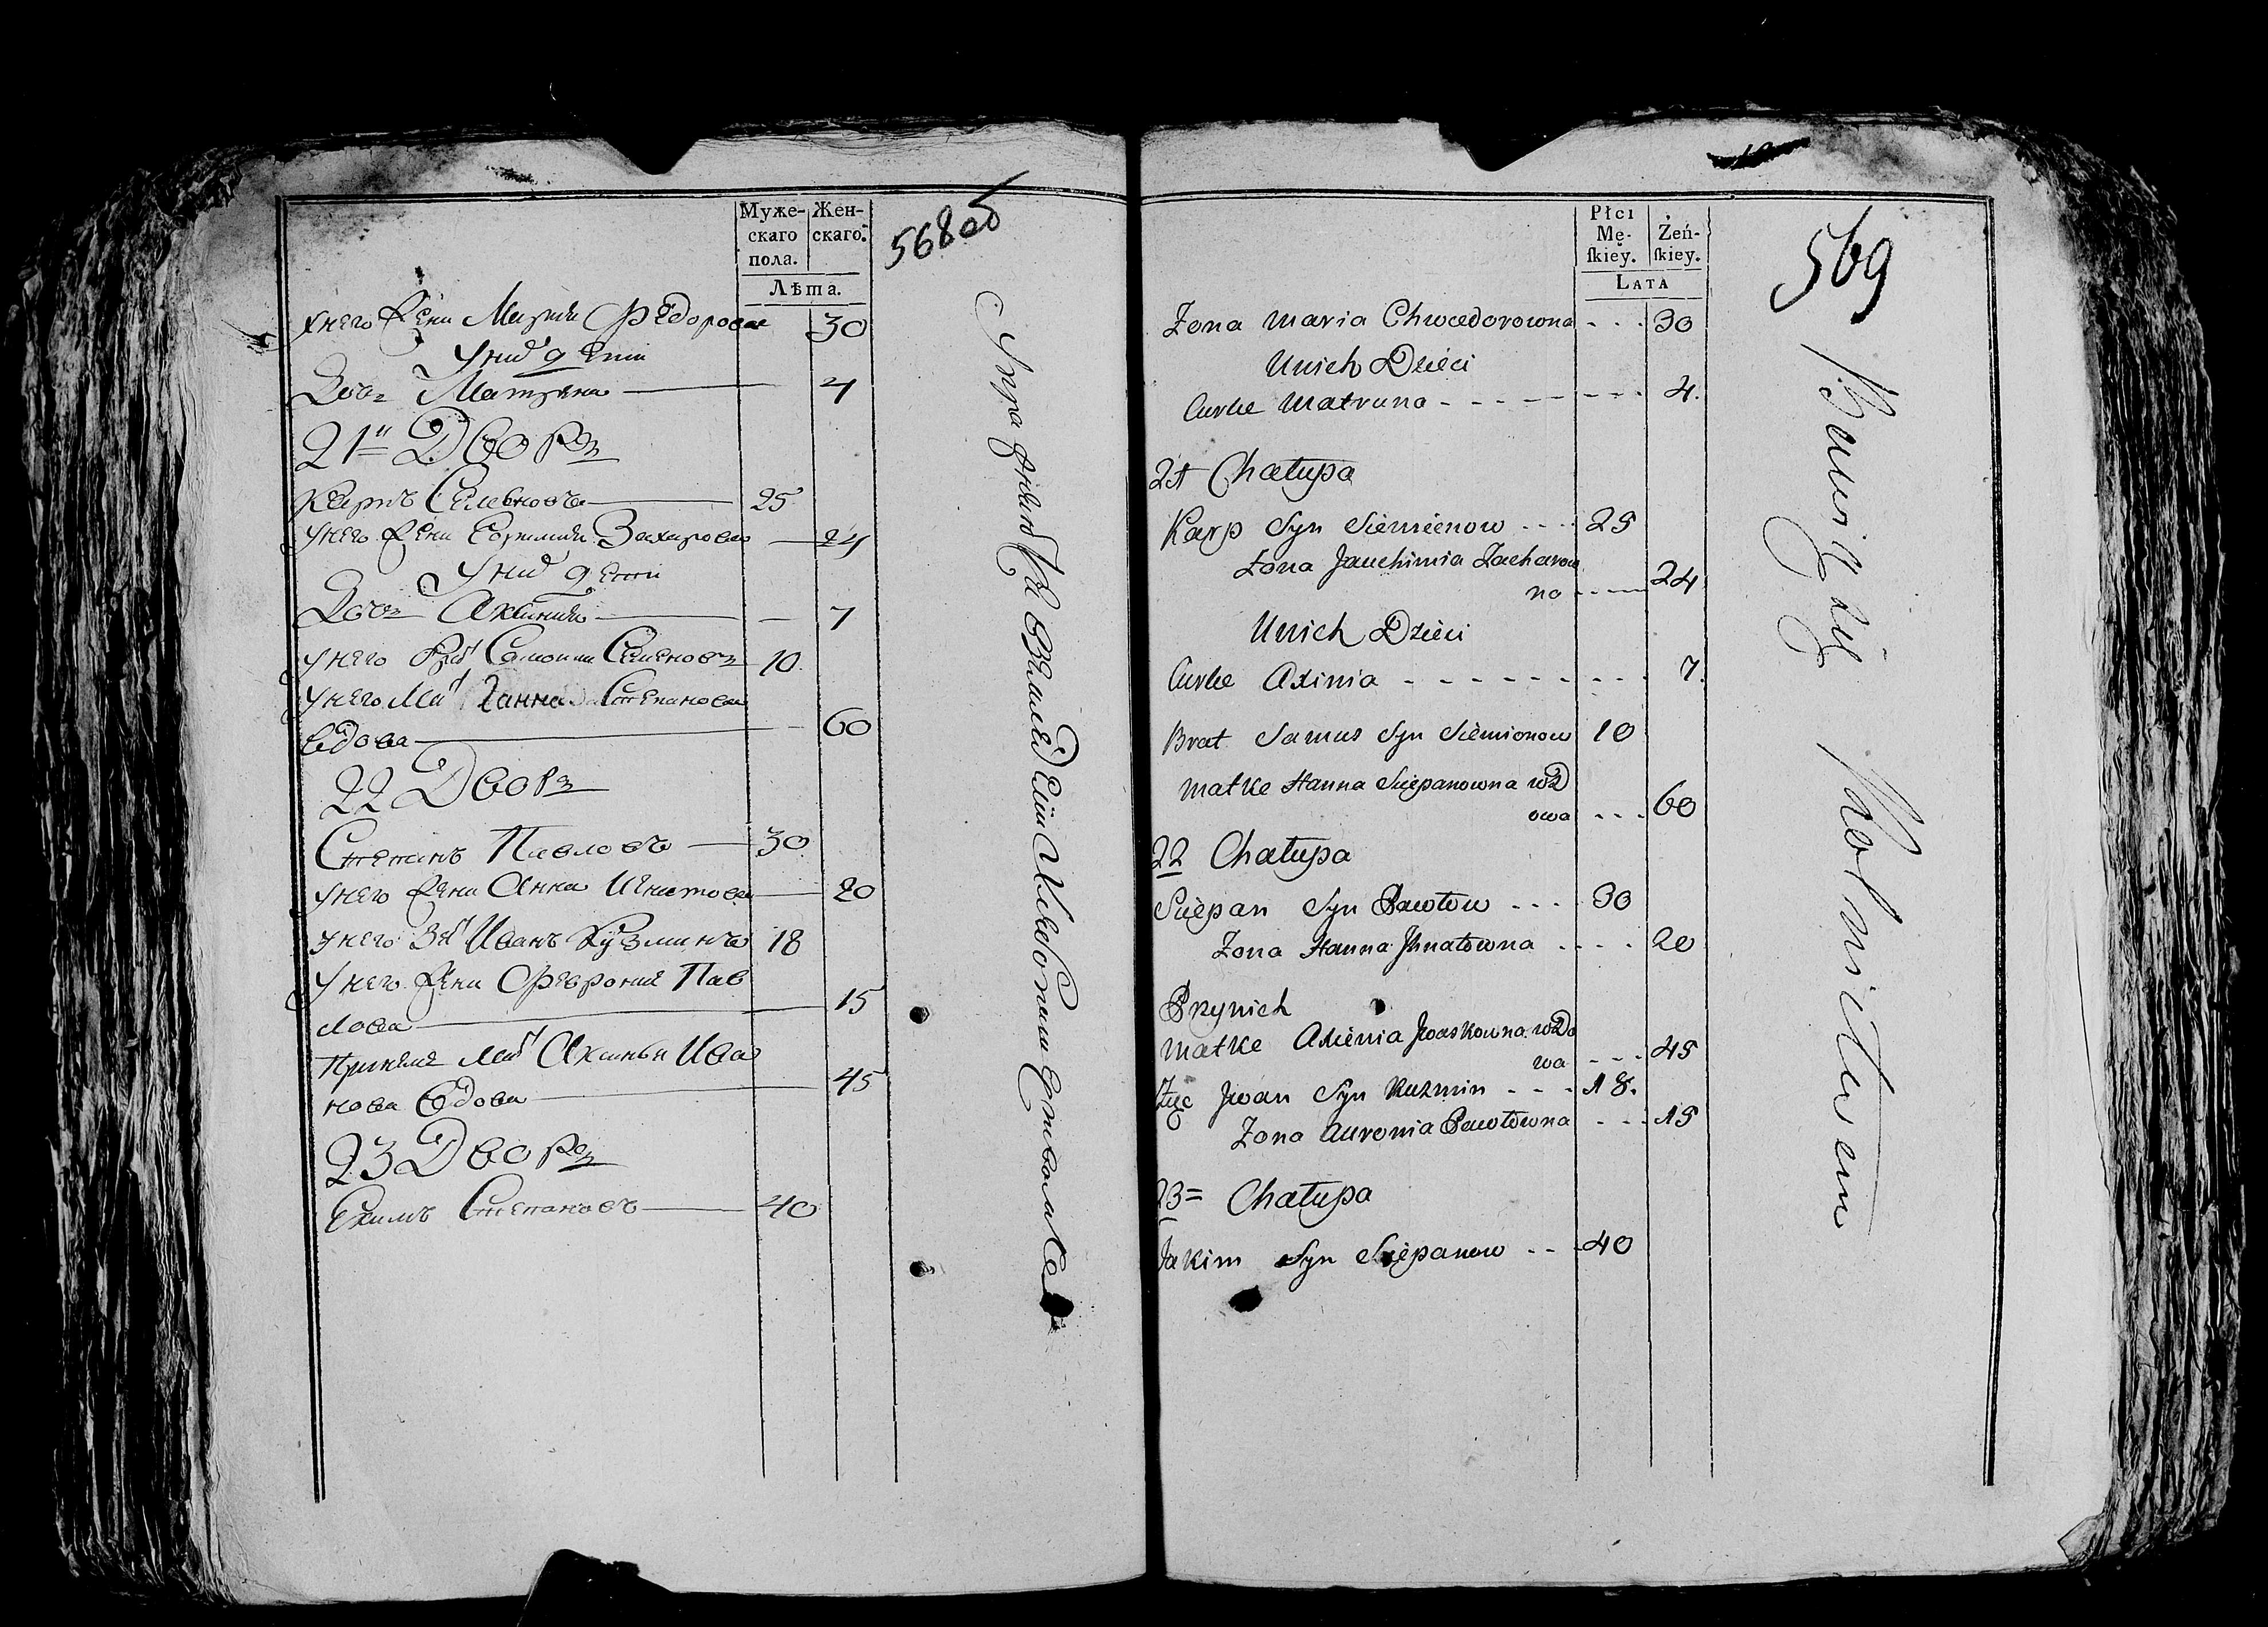 Муже-
скаго
пола.
Жен-
скаго.
Лѣта.
568 об
Унего жена Марья Федорова 30
Уних дети
Дочь Матрена 4
21й Дворъ
Карпъ Семеновъ 25
Унего жена Ефимия Захарова 24
Уних дети
Дочь Аксиния 7
Унего Самоила Семеновъ 10
Унего Ганна Степанова
вдова 60
22 Дворъ
Степанъ Павловъ 30
Унего жена Анна Игнатова 20
Унего Иванъ Кузминъ 18
Унего жена Феврония Пав
лова 15
Аксинья Ива
нова вдова 45
23 Дворъ
Екимъ Степановъ 40
Płci
Mę-
ſkiey.
Żeń-
ſkiey.
Lata
569
Zona Maria Chwedorowna - - - 30
Unich Dzieci
Curke Matruna - - - - - - - - 4.
21 Chałupa
Karp Syn Siemienow - - - 25
Zona Jauchimia Zacharow
na - - - - 24
Unich Dzieci
Curke Axinia - - - - - - - - - 7.
Brat Samus Syn Siemionow 10
Matke Hanna Sciepanowna wd
owa - - - 60
22 Chałupa
Sciepan Syn Pawłow - - - 30
Zona Hanna Jhnatowna - - - - 20
Przynich
Matke Axienia Jwaskowna wdo
wa - - - 45
Zięc Jwan Syn Kuzmin - - - 18.
Zona Auronia Pawłowna - - - 15
23= Chałupa
Jakim Syn Sciepanow - - - 40